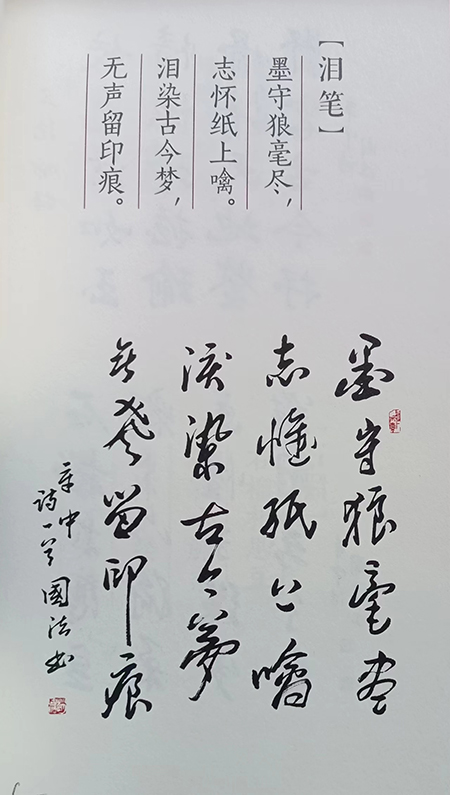 【泪笔】
墨守狼毫尽，
志怀纸上噙。
泪染古今梦，
无声留印痕。
墨守狼毫尽
志怀纸上噙
淚染古今夢
無聲留印痕
辛中
詩一首國法书